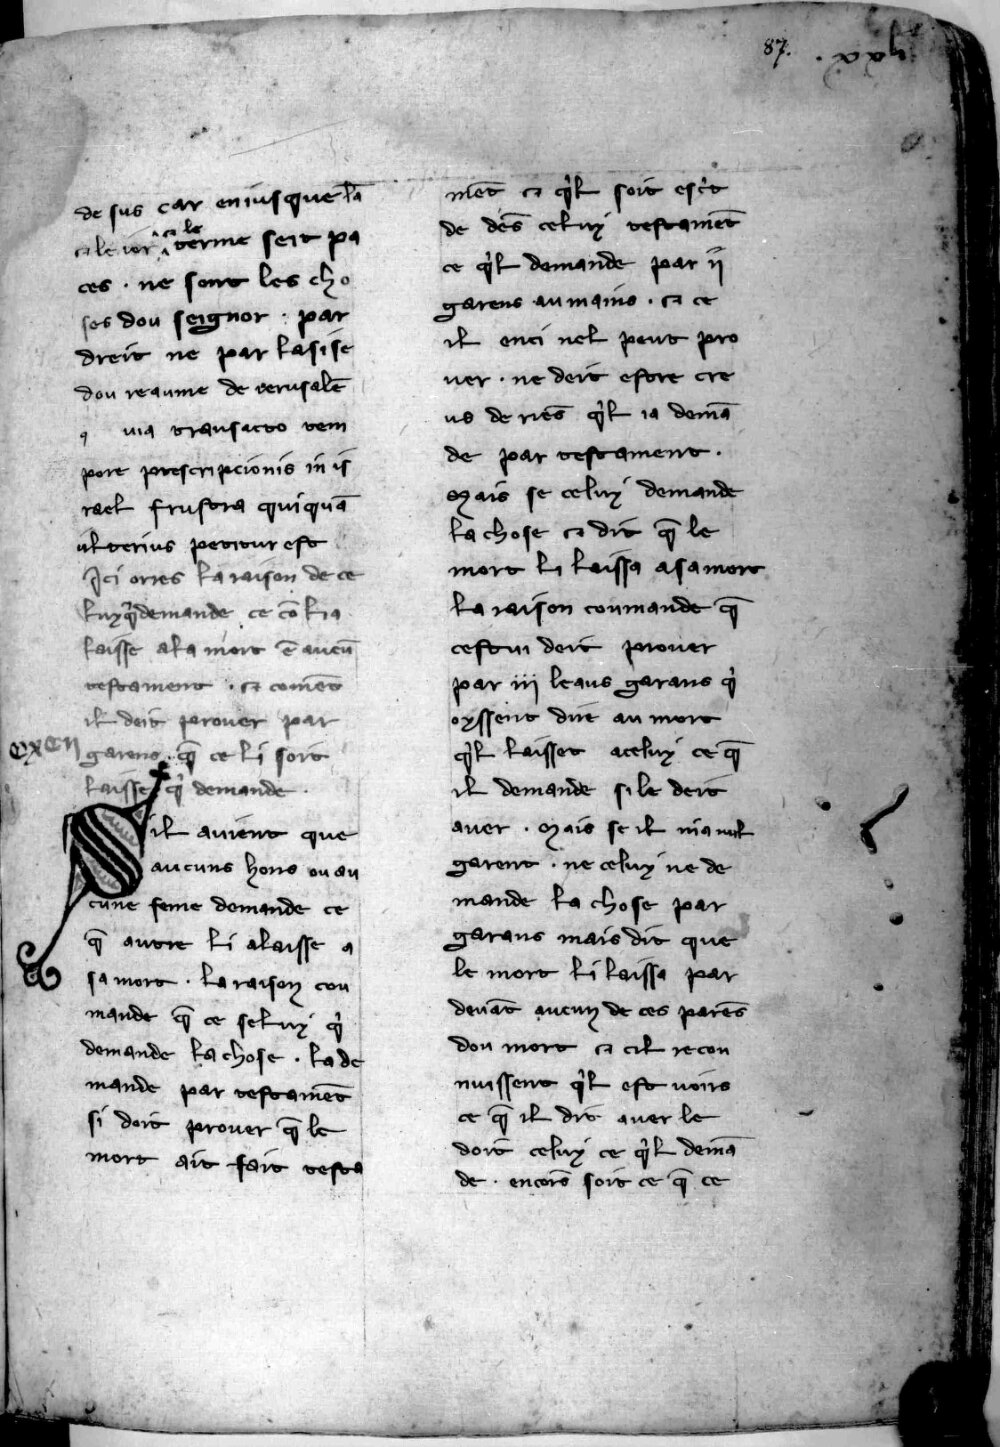 87. .xxh
de sus car eniusque lā
⁊ le ior ⁊ le terme seit pa
ces . ne sont les cho
ses dou seignor . par
dreit ne par lasise
dou reaume de ierusalē
q uia transacto tem
pore prescripcionis in is
rael frustra quiquā
ulterius petitur est
Ici orres la raison de ce
luy qͥ demande ce cō li a
laisse a la mort ē aucū
testament . ⁊ comēt
il deit prouer par
garens . q̄ ce li soit
laisse qͥ demande .
cxcii
Sil auient que
aucuns hons ou au
cune feme demande ce
q̄ autre li a laisse a
sa mort . la raison cou
mande q̄ ce seluy qͥ
demande la chose . la de
mande par testamēt
si doit prouer q̄ le
mort ait fait testa
mēt ⁊ qͥl soit escͥt
de dēs celuy testamēt
ce qͥl demande par ii
garens au mains . ⁊ ce
il enci nel peut pro
uer . ne deit estre cre
us de riēs qͥl ia demā
de par testament .
Mais se celuy demande
la chose ⁊ dit q̄ le
mort li laissa a sa mort
la raison coumande q̄
cestui deit prouer
par iii leaus garans qͥ
oyssent dire au mort
qͥl laisset a celuy ce q̄
il demande si le deit
auer . Mais se il nia nul
garent . ne celuy ne de
mande la chose par
garans mais dit que
le mort li laissa par
deuāt aucun de ces parēs
dou mort ⁊ cil recon
nuissent qͥl est uoirs
ce q̄ il dit auer le
doit celuy ce qͥl demā
de . encors soit ce q̄ ce